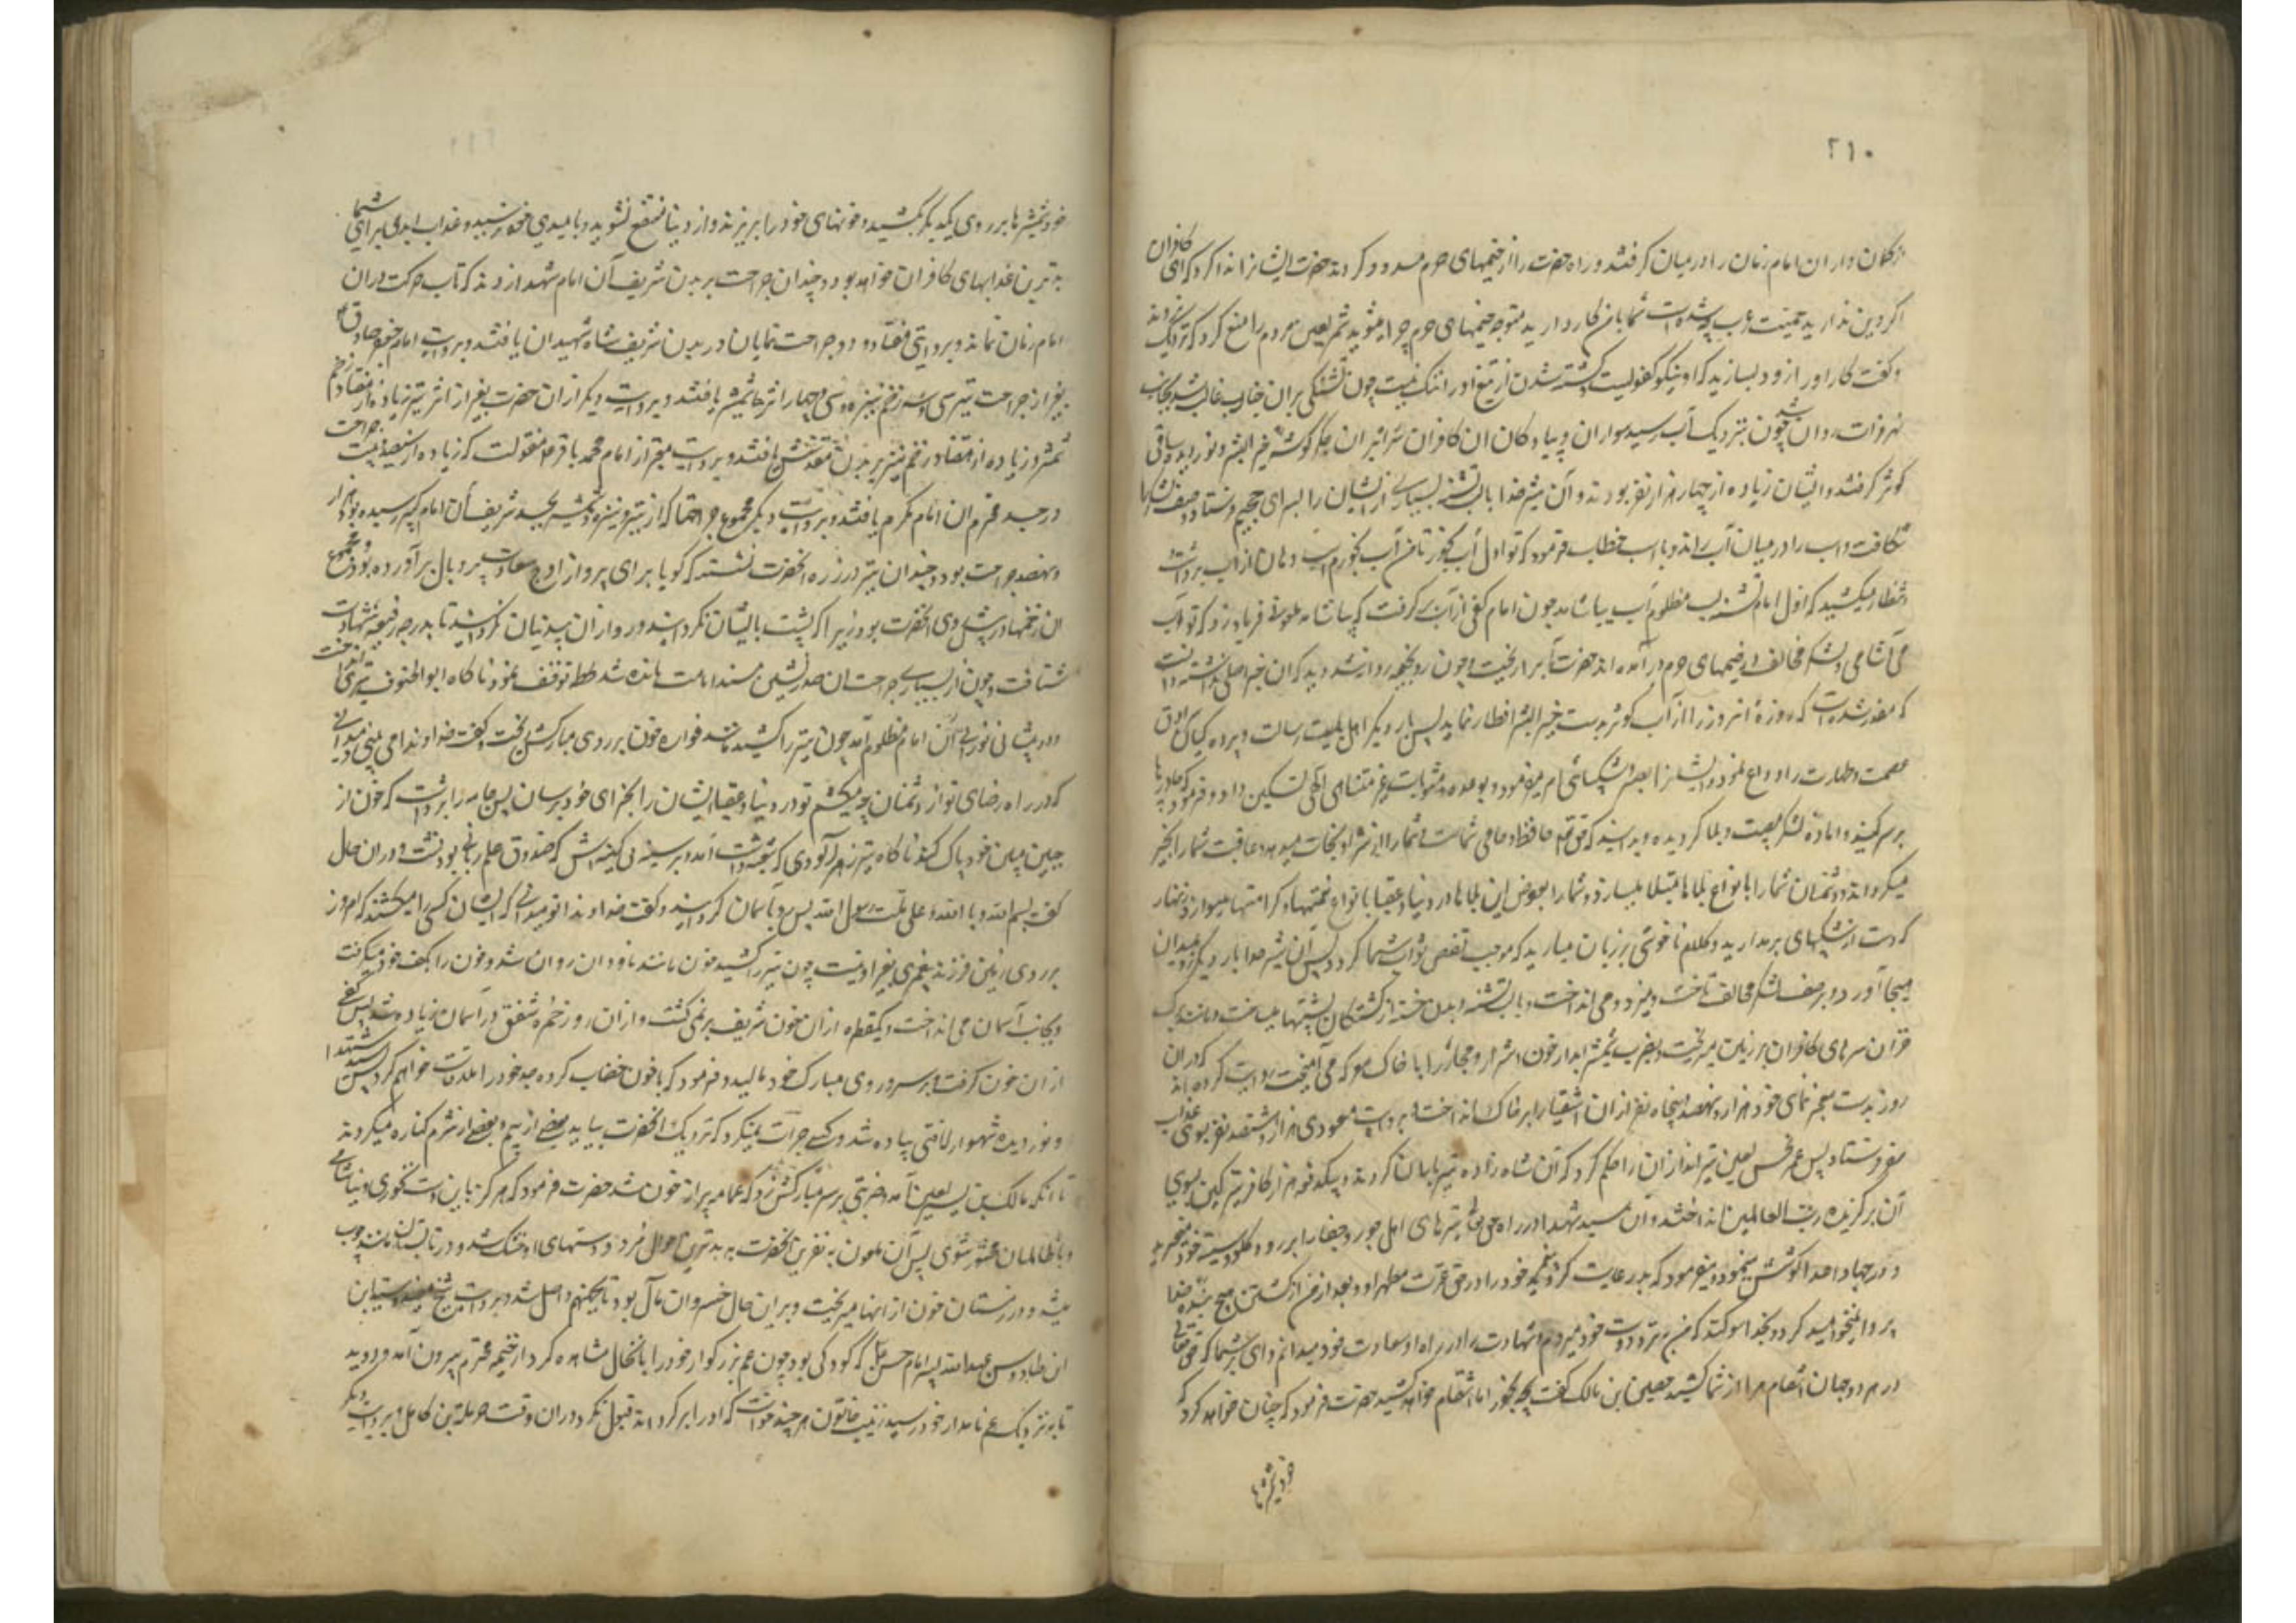 ۲۱۰
ازکان و اران امام زمان را در میان گرفتند و راه حضرت را از خیمهای حرم مسدود کردند حضرت ایشانرا ندا کرد که ای کافران
اگر دین ندارید حمیت عرب چه شده است شما با من کار دارید متوجه خیمهای حرم چرا میشوید شمر لعین مردم را منع کرد که نزدیک نروند
و گفت کار او را زود بسازید که او نیکو کفویست کشته شدن از تیغ او را ننگ نیست چون تشنگی بران جناب غالب شد بجانب
نهر فرات روان شد چون بنزدیک آب رسید سواران و پیادگان ان کافران سر راه بران جگر گوشه خیر البشر و نور دیده ساقی
کوثر گرفتند و ایشان زیاده از چهار هزار نفر بودند و آن شیر خدا با لب تشنه بسیاری از ایشان را بسرای جحیم فرستاد و صف لشکر را
شکافت و اسب را در میان آب راند و با اسب خطاب فرمود که تو اول آب بخور تا من آب بخورم اسب دهان از آب برداشت
و انتظار میکشید که اول امام تشنه لب مظلوم آب بیاشامد چون امام کفی از آب برگرفت که بیاشامد ملعونی فریاد زد که تو آب
می آشامی و لشکر مخالف در خیمهای حرم در آمده اند حضرت آب را ریخت و چون رو بخیمه روانه شد دید که ان خبر اصلی نداشته دانست
که مقدر شده است که روزهٔ انروز را از آب کوثر بدست خیر البشر افطار نماید پس بار دیگر اهل بیت رسالت و پرده گیان سرادق
عصمت و طهارت را وداع نمود و ایشانرا بصبر و شکیبائی امر میفرمود و بوعده مثوبات غیر متناهی الهی تسکین داد و فرمود که چادرها
بر سر کنید و امادهٔ لشکر مصیبت و بلا گردیده و بدانید که حق تعالی حافظ و حامی شماست و شما را از شر اعدا نجات میدهد و عاقبت شما را بخیر
میگرداند و دشمنان شما را بانواع بلاها مبتلا میسازد و شما را بعوض این بلاها در دنیا و عقبا بانواع نعمتها و کرامتها مینوازد زنهار
که دست از شکیبائی برمدارید و کلام ناخوشی بر زبان میارید که موجب نقص ثواب شما گردد پس آن شیر خدا بار دیگر رو بمیدان
هیجا آورد و بر صف لشکر مخالف تاخت و میزد و می انداخت و با لب تشنه و بدن خسته از کشتگان پشتها میساخت و مانند برک
خزان سرهای کافران بر زمین میریخت و بضرب شمشیر ابدار خون اشرار و فجار را با خاک معرکه می آمیخت روایت کرده اند که دران
روز بدست معجز نمای خود هزار و نهصد و پنجاه نفر از ان اشقیا را بر خاک انداخت و بروایت مسعودی هزار و هشتصد نفر بسوی عذاب
سقر فرستاد پس عمر نحس لعین تیراندازان را حکم کرد که آن شاه زاده را تیر باران کردند و بیکدفعه هزار کافر تیر کین بسوی
آن برگزیدهٔ رب العالمین انداختند و آن سید شهدا در راه حق تعالی تیرهای اهل جور و جفا را بر رو و گلو و سینهٔ خود میخرید
و در جهاد اعدا کوشش مینمود و میفرمود که بد رعایت کردید پیغمبر خود را در حق عترت مطهر او و بعد از من از کشتن هیچ بندهٔ خدا
پروا نخواهید کرد و بخدا سوگند که من بنزد دوست خود میروم و شهادت را در راه او سعادت خود میدانم و ای بر شما که حق تعالی
در هر دو جهان انتقام مرا از شما کشید حصین بن مالک گفت چه نحو از ما انتقام خواهد کشید حضرت فرمود که چنان خواهد کرد که
خود شمشیرها
خود شمشیرها بر روی یکدیگر بکشید و خونهای خود را بریزند و از دنیا منتفع نشوید و بامیدی خود نرسید و عذاب ابدی برای شما
بدترین عذابهای کافران خواهد بود و چندان جراحت بر بدن شریف آن امام شهدا زدند که تاب حرکت دران
امام زمان نماند و بروایتی هفتاد و دو جراحت نمایان در بدن شریف شاه شهیدان یافتند و بروایت امام جعفر صادق ع
بغیر از جراحت تیر سی و سه زخم نیزه و سی و چهار اثر شمشیر یافتند و بروایت دیگر از ان حضرت بغیر از اثر تیر زیاده از هفتاد زخم
شمشیر و زیاده از هفتاد زخم نیزه بر بدن مقدسش یافتند و بروایت معتبر از امام محمد باقر ع منقولست که زیاده از سیصد و بیست جراحت
در جسد محترم ان امام مکرم یافتند و بروایت دیگر مجموع جراحتها که از تیر و نیزه و شمشیر بجسد شریف آن امام کبیر رسیده بود هزار
و نهصد جراحت بود و چندان تیر در زره انحضرت نشسته که گویا برای پرواز اوج سعادت پر و بال برآورده بود و مجموع
ان زخمها در پیش روی انحضرت بود زیرا که پشت بایشان نکردانید و رو از ان بیدینان نکردانید تا بدرجه رفیعه شهادت
شتافت و چون از بسیاری جراحت ان صدرنشین مسند امامت مانده شد لحظه توقف نمود ناگاه ابوالحنوف تیری انداخت
و در پیشانی نورانی آن امام مظلوم آمد چون تیر را کشید مانند فواره خون بر روی مبارکش ریخت و گفت خداوندا می بینی و میدانی
که در راه رضای تو از دشمنان چه میکشم تو در دنیا و عقبا ایشان را بجزای خود برسان پس جامه را برداشت که خون از
جبین مبین خود پاک کند ناگاه تیر زهر آلودی که سه شعبه داشت آمد و بر سینه بی کینه اش که صندوق علم ربانی بود نشست و دران حال
گفت بسم الله و بالله و علی ملت رسول الله پس رو بآسمان گردانید و گفت خداوندا تو میدانی که ایشان کسی را میکشند که امروز
بر روی زمین فرزند پیغمبری بغیر او نیست چون تیر را کشید خون مانند ناودان روان شد و خون را بکف خود میگرفت
و بجانب آسمان می انداخت و یکقطره از ان خون شریف بر نمی گشت و از ان روز حمرهٔ شفق در آسمان زیاده شد پس کفی
از ان خون گرفت و بر سر و روی مبارک خود مالید و فرمود که با خون خضاب کرده جد خود را ملاقات خواهم کرد پس سید شهدا
و نور دیده شهسوار لافتی پیاده شد و کسی جرات نمیکرد که نزدیک انحضرت بیاید بعضی از بیم و بعضی از شرم کناره میکردند
تا انکه مالک بن یسر لعین آمد و ضربتی بر سر مبارکش زد که عمامه پر از خون شد حضرت فرمود که هرگز باین دست نخوری و نیاشامی
و با ظالمان محشور شوی پس آن ملعون به نفرین انحضرت به بدترین احوال مرد و دستهای او خشک شد و در تابستان مانند چوب
میشد و در زمستان خون از انها میریخت و بر این حال خسران مآل بود تا بجهنم واصل شد و بروایت شیخ مفید و سید ابن
ابن طاوس عبدالله پسر امام حسن ع که کودکی بود چون عم بزرگوار خود را بانحال مشاهده کرد از خیمه محترم بیرون آمد و دوید
تا به نزدیک عم نامدار خود رسید زینب خاتون هر چند خواست که او را برگرداند قبول نکرد دران وقت حرملة بن کاهل و بروایت دیگر